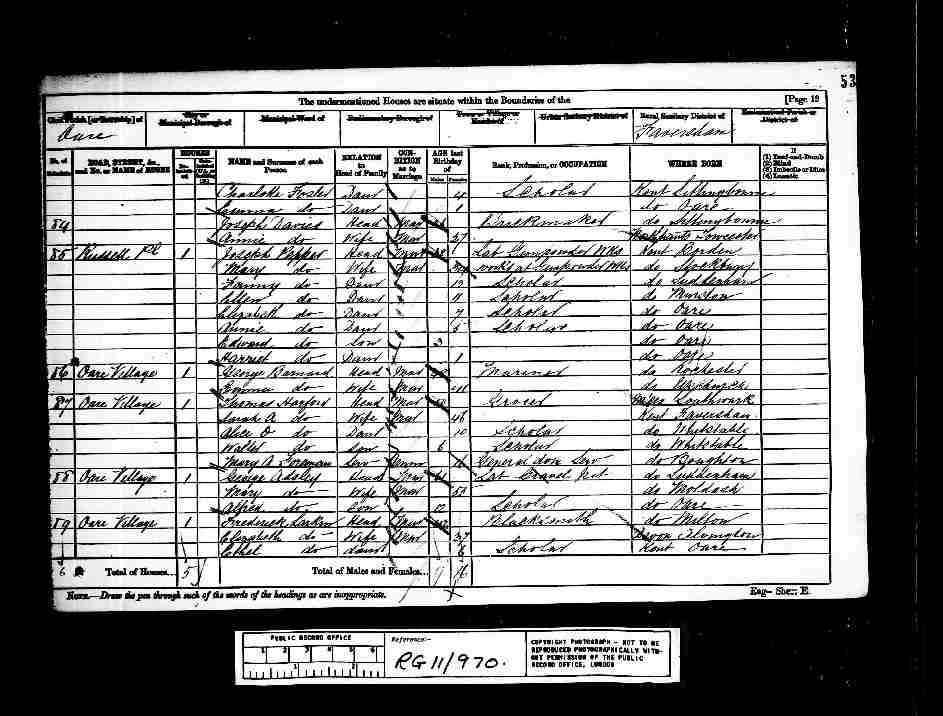 53
The undermentioned Houses are situate within the Boundaries of the [Page 19
Civil Parish [or Township] of City or Municipal Borough of Municipal Ward of Parliamentary Borough of Town or Village or Hamlet of Urban Sanitary District of Rural Sanitary District of Ecclesiastical Parish or District of
Oare Faversham
No. of Schedule ROAD, STREET, &c., and No. or NAME of HOUSE HOUSES NAME and Surname of each Person RELATION to Head of Family CONDITION as to Marriage AGE last Birthday of Males Females Rank, Profession, or OCCUPATION WHERE BORN If (1) Deaf-and-Dumb (2) Blind (3) Imbecile or Idiot (4) Lunatic
Charlotte Foster Daur 4 Scholar Kent Sittingbourne
do Daur 1 do Oare
84 Joseph Davies Head Mar do Sittingbourne
Annie do Wife Mar 37 Towcester
85 Russell Pl 1 Joseph Pepper Head Mar Lab Gunpowder Wks Kent
Mary do Wife Mar works at Gunpowder Wks do Stockbury
Fanny do Daur 13 Scholar do Luddenham
Ellen do Daur 11 Scholar do Murston
Elizabeth do Daur 7 Scholar do Oare
Annie do Daur 5 Scholar do Oare
Edward do Son 3 do Oare
Harriet do Daur 1 do Oare
86 Oare Village 1 George Barnard Head Mar Mariner do Rochester
Emma do Wife Mar do Upchurch
87 Oare Village 1 Thomas Head Mar Grocer Southwark
Sarah A do Wife Mar 46 Kent Faversham
Alice do Daur 10 Scholar do Whitstable
Walter do Son 6 Scholar do Whitstable
Mary A Foreman Serv 16 General dom Serv do Boughton
88 Oare Village 1 George Adsley Head Mar Lab Gravel Pit do Luddenham
Mary do Wife Mar 58 do
Alfred do Son 12 Scholar do Oare
89 Oare Village 1 Frederick Larkin Head Mar Blacksmith do Milton
Elizabeth do Wife Mar 37 Devon
Ethel do daur 6 Scholar Kent Oare
6 Total of Houses... 5 Total of Males and Females... 9 16
NOTE.—Draw the pen through such of the words of the headings as are inappropriate.
Eng— Sheet E.
PUBLIC RECORD OFFICE
1 2 3 4 5 6
1 2
Reference:-
RG 11/970.
COPYRIGHT PHOTOGRAPH - NOT TO BE
REPRODUCED PHOTOGRAPHICALLY WITH-
OUT PERMISSION OF THE PUBLIC
RECORD OFFICE, LONDON